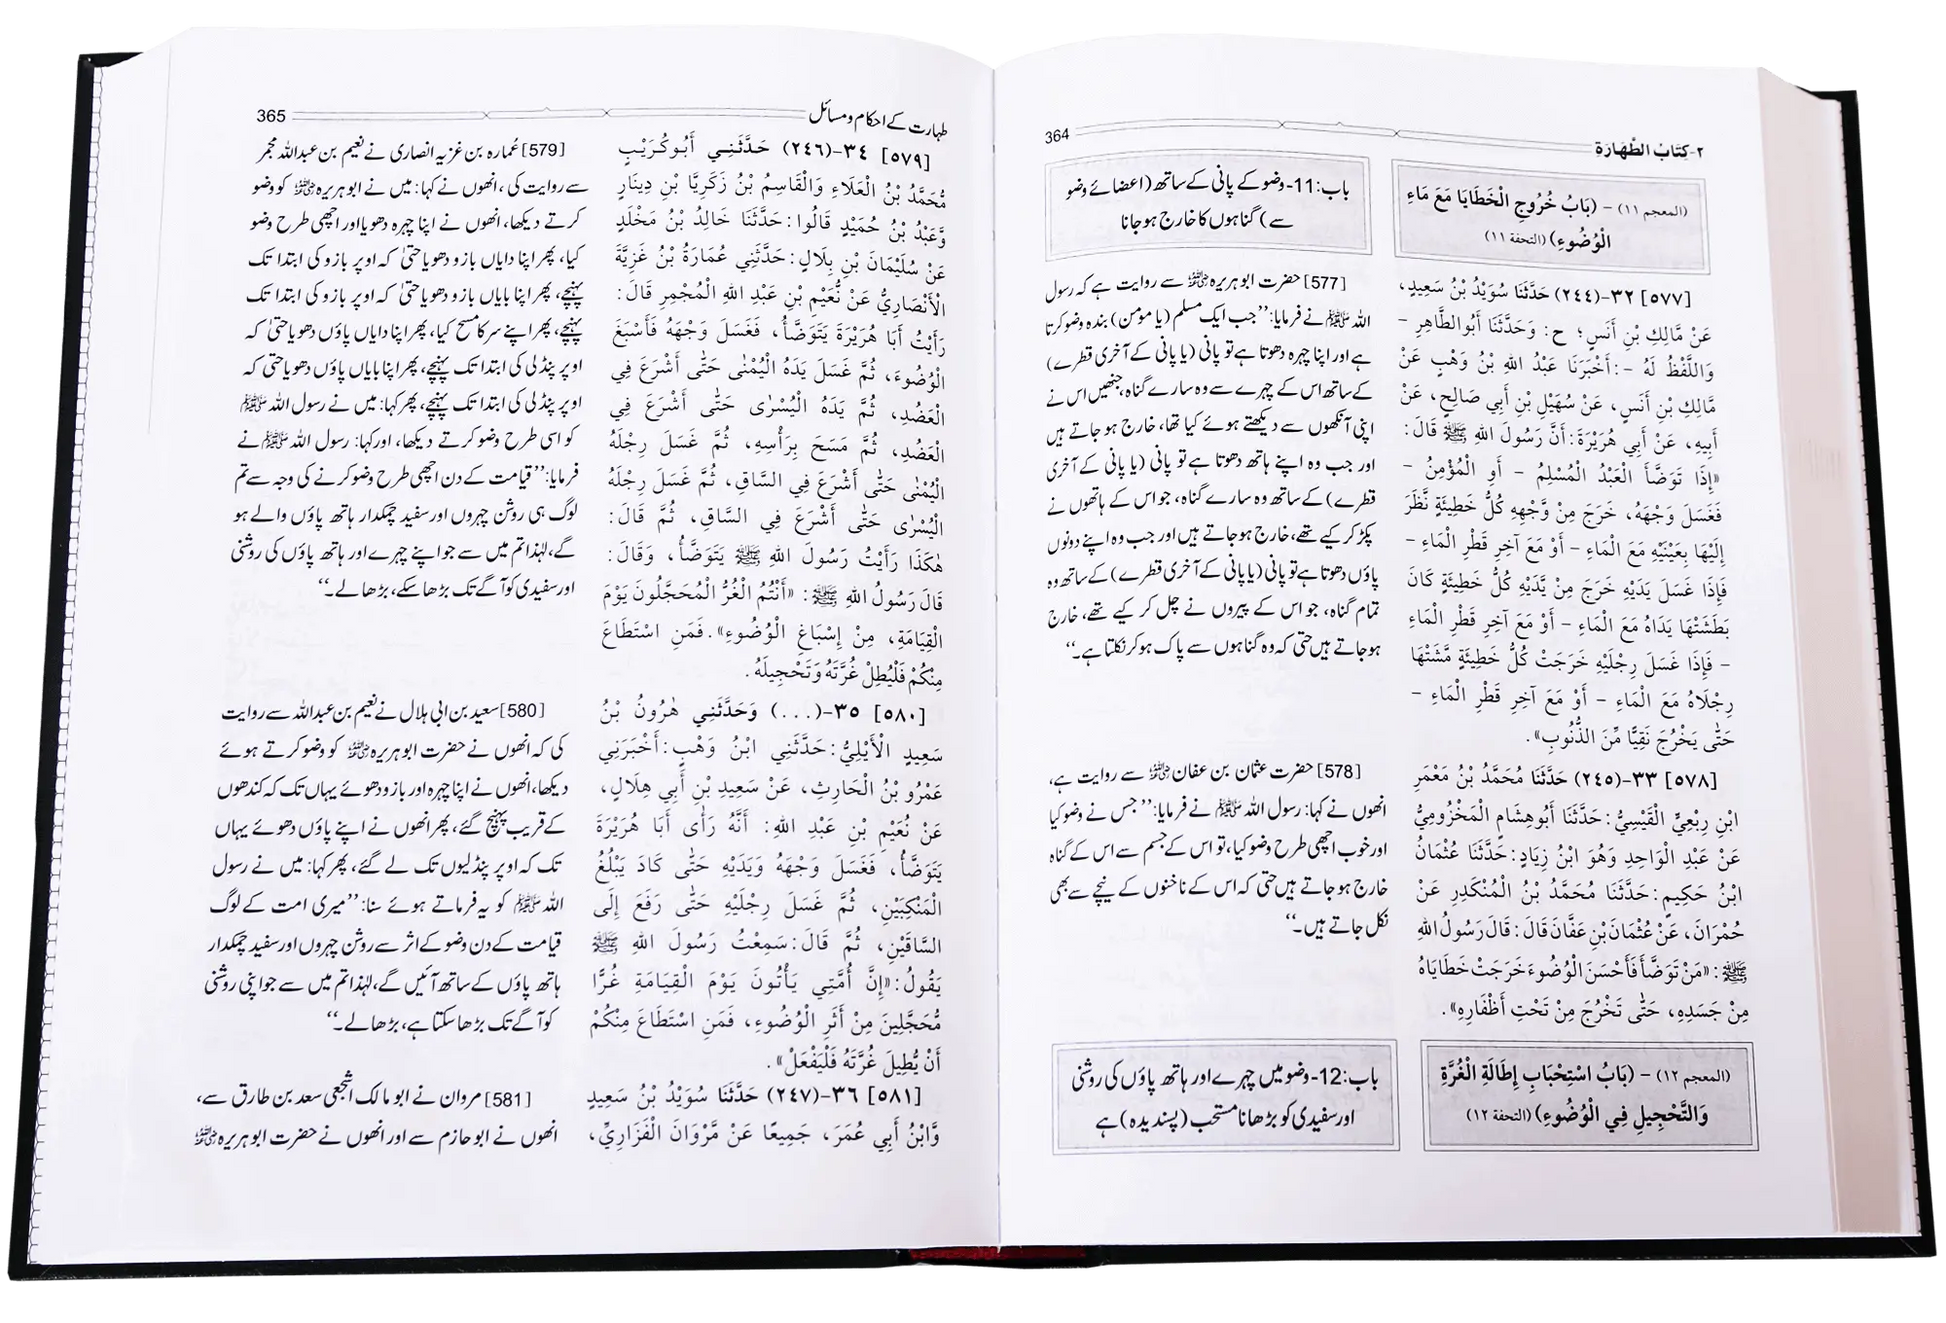 ٢-كِتَابُ الطَّهَارَةِ
364
(المعجم ١١) - (بَابُ خُرُوجِ الْخَطَايَا مَعَ مَاءِ
الْوُضُوءِ) (التحفة ١١)
[٥٧٧] ٣٢-(٢٤٤) حَدَّثَنَا سُوَيْدُ بْنُ سَعِيدٍ،
عَنْ مَّالِكِ بْنِ أَنَسٍ؛ ح: وَحَدَّثَنَا أَبُوالطَّاهِرِ -
وَاللَّفْظُ لَهُ -: أَخْبَرَنَا عَبْدُ اللهِ بْنُ وَهْبٍ عَنْ
مَّالِكِ بْنِ أَنَسٍ، عَنْ سُهَيْلِ بْنِ أَبِي صَالِحٍ، عَنْ
أَبِيهِ، عَنْ أَبِي هُرَيْرَةَ: أَنَّ رَسُولَ اللهِ ﷺ قَالَ:
«إِذَا تَوَضَّأَ الْعَبْدُ الْمُسْلِمُ - أَوِ الْمُؤْمِنُ -
فَغَسَلَ وَجْهَهُ، خَرَجَ مِنْ وَّجْهِهِ كُلُّ خَطِيئَةٍ نَّظَرَ
إِلَيْهَا بِعَيْنَيْهِ مَعَ الْمَاءِ - أَوْ مَعَ آخِرِ قَطْرِ الْمَاءِ -
فَإِذَا غَسَلَ يَدَيْهِ خَرَجَ مِنْ يَّدَيْهِ كُلُّ خَطِيئَةٍ كَانَ
بَطَشَتْهَا يَدَاهُ مَعَ الْمَاءِ - أَوْ مَعَ آخِرِ قَطْرِ الْمَاءِ
- فَإِذَا غَسَلَ رِجْلَيْهِ خَرَجَتْ كُلُّ خَطِيئَةٍ مَّشَتْهَا
رِجْلَاهُ مَعَ الْمَاءِ - أَوْ مَعَ آخِرِ قَطْرِ الْمَاءِ -
حَتَّى يَخْرُجَ نَقِيًّا مِّنَ الذُّنُوبِ».
[٥٧٨] ٣٣-(٢٤٥) حَدَّثَنَا مُحَمَّدُ بْنُ مَعْمَرِ
ابْنِ رِبْعِيٍّ الْقَيْسِيُّ: حَدَّثَنَا أَبُوهِشَامٍ الْمَخْزُومِيُّ
عَنْ عَبْدِ الْوَاحِدِ وَهُوَ ابْنُ زِيَادٍ: حَدَّثَنَا عُثْمَانُ
ابْنُ حَكِيمٍ: حَدَّثَنَا مُحَمَّدُ بْنُ الْمُنْكَدِرِ عَنْ
حُمْرَانَ، عَنْ عُثْمَانَ بْنِ عَفَّانَ قَالَ: قَالَ رَسُولُ اللهِ
ﷺ: «مَنْ تَوَضَّأَ فَأَحْسَنَ الْوُضُوءَ خَرَجَتْ خَطَايَاهُ
مِنْ جَسَدِهِ، حَتَّى تَخْرُجَ مِنْ تَحْتِ أَظْفَارِهِ».
(المعجم ١٢) - (بَابُ اسْتِحْبَابِ إِطَالَةِ الْغُرَّةِ
وَالتَّحْجِيلِ فِي الْوُضُوءِ) (التحفة ١٢)
باب:11-وضو کے پانی کے ساتھ (اعضائے وضو
سے) گناہوں کا خارج ہو جانا
[577] حضرت ابو ہریرہ رضی اللہ عنہ سے روایت ہے کہ رسول
اللہ ﷺ نے فرمایا: ’’جب ایک مسلم (یا مومن) بندہ وضو کرتا
ہے اور اپنا چہرہ دھوتا ہے تو پانی (یا پانی کے آخری قطرے)
کے ساتھ اس کے چہرے سے وہ سارے گناہ، جنھیں اس نے
اپنی آنکھوں سے دیکھتے ہوئے کیا تھا، خارج ہو جاتے ہیں
اور جب وہ اپنے ہاتھ دھوتا ہے تو پانی (یا پانی کے آخری
قطرے) کے ساتھ وہ سارے گناہ، جو اس کے ہاتھوں نے
پکڑ کر کیے تھے، خارج ہو جاتے ہیں اور جب وہ اپنے دونوں
پاؤں دھوتا ہے تو پانی (یا پانی کے آخری قطرے) کے ساتھ وہ
تمام گناہ، جو اس کے پیروں نے چل کر کیے تھے، خارج
ہو جاتے ہیں حتی کہ وہ گناہوں سے پاک ہو کر نکلتا ہے۔‘‘
[578] حضرت عثمان بن عفان رضی اللہ عنہ سے روایت ہے،
انھوں نے کہا: رسول اللہ ﷺ نے فرمایا: ’’جس نے وضو کیا
اور خوب اچھی طرح وضو کیا، تو اس کے جسم سے اس کے گناہ
خارج ہو جاتے ہیں حتی کہ اس کے ناخنوں کے نیچے سے بھی
نکل جاتے ہیں۔‘‘
باب:12-وضو میں چہرے اور ہاتھ پاؤں کی روشنی
اور سفیدی کو بڑھانا مستحب (پسندیدہ) ہے
طہارت کے احکام و مسائل
365
[٥٧٩] ٣٤-(٢٤٦) حَدَّثَنِي أَبُوكُرَيْبٍ
مُّحَمَّدُ بْنُ الْعَلَاءِ وَالْقَاسِمُ بْنُ زَكَرِيَّا بْنِ دِينَارٍ
وَّعَبْدُ بْنُ حُمَيْدٍ قَالُوا: حَدَّثَنَا خَالِدُ بْنُ مَخْلَدٍ
عَنْ سُلَيْمَانَ بْنِ بِلَالٍ: حَدَّثَنِي عُمَارَةُ بْنُ غَزِيَّةَ
الْأَنْصَارِيُّ عَنْ نُّعَيْمِ بْنِ عَبْدِ اللهِ الْمُجْمِرِ قَالَ:
رَأَيْتُ أَبَا هُرَيْرَةَ يَتَوَضَّأُ، فَغَسَلَ وَجْهَهُ فَأَسْبَغَ
الْوُضُوءَ، ثُمَّ غَسَلَ يَدَهُ الْيُمْنٰى حَتّٰى أَشْرَعَ فِي
الْعَضُدِ، ثُمَّ يَدَهُ الْيُسْرٰى حَتّٰى أَشْرَعَ فِي
الْعَضُدِ، ثُمَّ مَسَحَ بِرَأْسِهِ، ثُمَّ غَسَلَ رِجْلَهُ
الْيُمْنٰى حَتّٰى أَشْرَعَ فِي السَّاقِ، ثُمَّ غَسَلَ رِجْلَهُ
الْيُسْرٰى حَتّٰى أَشْرَعَ فِي السَّاقِ، ثُمَّ قَالَ:
هٰكَذَا رَأَيْتُ رَسُولَ اللهِ ﷺ يَتَوَضَّأُ، وَقَالَ:
قَالَ رَسُولُ اللهِ ﷺ: «أَنْتُمُ الْغُرُّ الْمُحَجَّلُونَ يَوْمَ
الْقِيَامَةِ، مِنْ إِسْبَاغِ الْوُضُوءِ». فَمَنِ اسْتَطَاعَ
مِنْكُمْ فَلْيُطِلْ غُرَّتَهُ وَتَحْجِيلَهُ.
[٥٨٠] ٣٥-(...) وَحَدَّثَنِي هٰرُونُ بْنُ
سَعِيدٍ الْأَيْلِيُّ: حَدَّثَنِي ابْنُ وَهْبٍ: أَخْبَرَنِي
عَمْرُو بْنُ الْحَارِثِ، عَنْ سَعِيدِ بْنِ أَبِي هِلَالٍ،
عَنْ نُعَيْمِ بْنِ عَبْدِ اللهِ: أَنَّهُ رَأَى أَبَا هُرَيْرَةَ
يَتَوَضَّأُ، فَغَسَلَ وَجْهَهُ وَيَدَيْهِ حَتّٰى كَادَ يَبْلُغُ
الْمَنْكِبَيْنِ، ثُمَّ غَسَلَ رِجْلَيْهِ حَتّٰى رَفَعَ إِلَى
السَّاقَيْنِ، ثُمَّ قَالَ: سَمِعْتُ رَسُولَ اللهِ ﷺ
يَقُولُ: «إِنَّ أُمَّتِي يَأْتُونَ يَوْمَ الْقِيَامَةِ غُرًّا
مُّحَجَّلِينَ مِنْ أَثَرِ الْوُضُوءِ، فَمَنِ اسْتَطَاعَ مِنْكُمْ
أَنْ يُّطِيلَ غُرَّتَهُ فَلْيَفْعَلْ».
[٥٨١] ٣٦-(٢٤٧) حَدَّثَنَا سُوَيْدُ بْنُ سَعِيدٍ
وَّابْنُ أَبِي عُمَرَ، جَمِيعًا عَنْ مَّرْوَانَ الْفَزَارِيِّ،
[579] عُمارہ بن غزیہ انصاری نے نعیم بن عبداللہ مجمر
سے روایت کی، انھوں نے کہا: میں نے ابو ہریرہ رضی اللہ عنہ کو وضو
کرتے دیکھا، انھوں نے اپنا چہرہ دھویا اور اچھی طرح وضو
کیا، پھر اپنا دایاں بازو دھویا حتیٰ کہ اوپر بازو کی ابتدا تک
پہنچے، پھر اپنا بایاں بازو دھویا حتیٰ کہ اوپر بازو کی ابتدا تک
پہنچے، پھر اپنے سر کا مسح کیا، پھر اپنا دایاں پاؤں دھویا حتیٰ کہ
اوپر پنڈلی کی ابتدا تک پہنچے، پھر اپنا بایاں پاؤں دھویا حتی کہ
اوپر پنڈلی کی ابتدا تک پہنچے، پھر کہا: میں نے رسول اللہ ﷺ
کو اسی طرح وضو کرتے دیکھا، اور کہا: رسول اللہ ﷺ نے
فرمایا: ’’قیامت کے دن اچھی طرح وضو کرنے کی وجہ سے تم
لوگ ہی روشن چہروں اور سفید چمکدار ہاتھ پاؤں والے ہو
گے، لہٰذا تم میں سے جو اپنے چہرے اور ہاتھ پاؤں کی روشنی
اور سفیدی کو آگے تک بڑھا سکے، بڑھا لے۔‘‘
[580] سعید بن ابی ہلال نے نعیم بن عبداللہ سے روایت
کی کہ انھوں نے حضرت ابو ہریرہ رضی اللہ عنہ کو وضو کرتے ہوئے
دیکھا، انھوں نے اپنا چہرہ اور بازو دھوئے یہاں تک کہ کندھوں
کے قریب پہنچ گئے، پھر انھوں نے اپنے پاؤں دھوئے یہاں
تک کہ اوپر پنڈلیوں تک لے گئے، پھر کہا: میں نے رسول
اللہ ﷺ کو یہ فرماتے ہوئے سنا: ’’میری امت کے لوگ
قیامت کے دن وضو کے اثر سے روشن چہروں اور سفید چمکدار
ہاتھ پاؤں کے ساتھ آئیں گے، لہٰذا تم میں سے جو اپنی روشنی
کو آگے تک بڑھا سکتا ہے، بڑھا لے۔‘‘
[581] مروان نے ابو مالک اشجعی سعد بن طارق سے،
انھوں نے ابو حازم سے اور انھوں نے حضرت ابو ہریرہ رضی اللہ عنہ